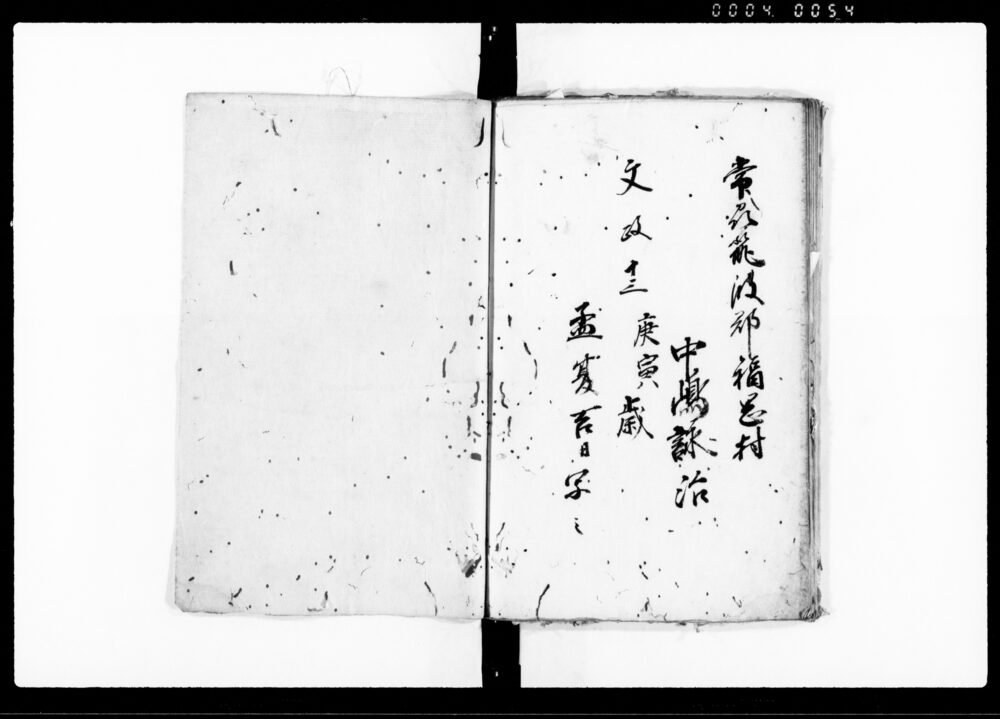 0004 0054
常刕筑波郡福岡村
中嶋詠治
文政十三
庚寅歳
孟夏吉日写之